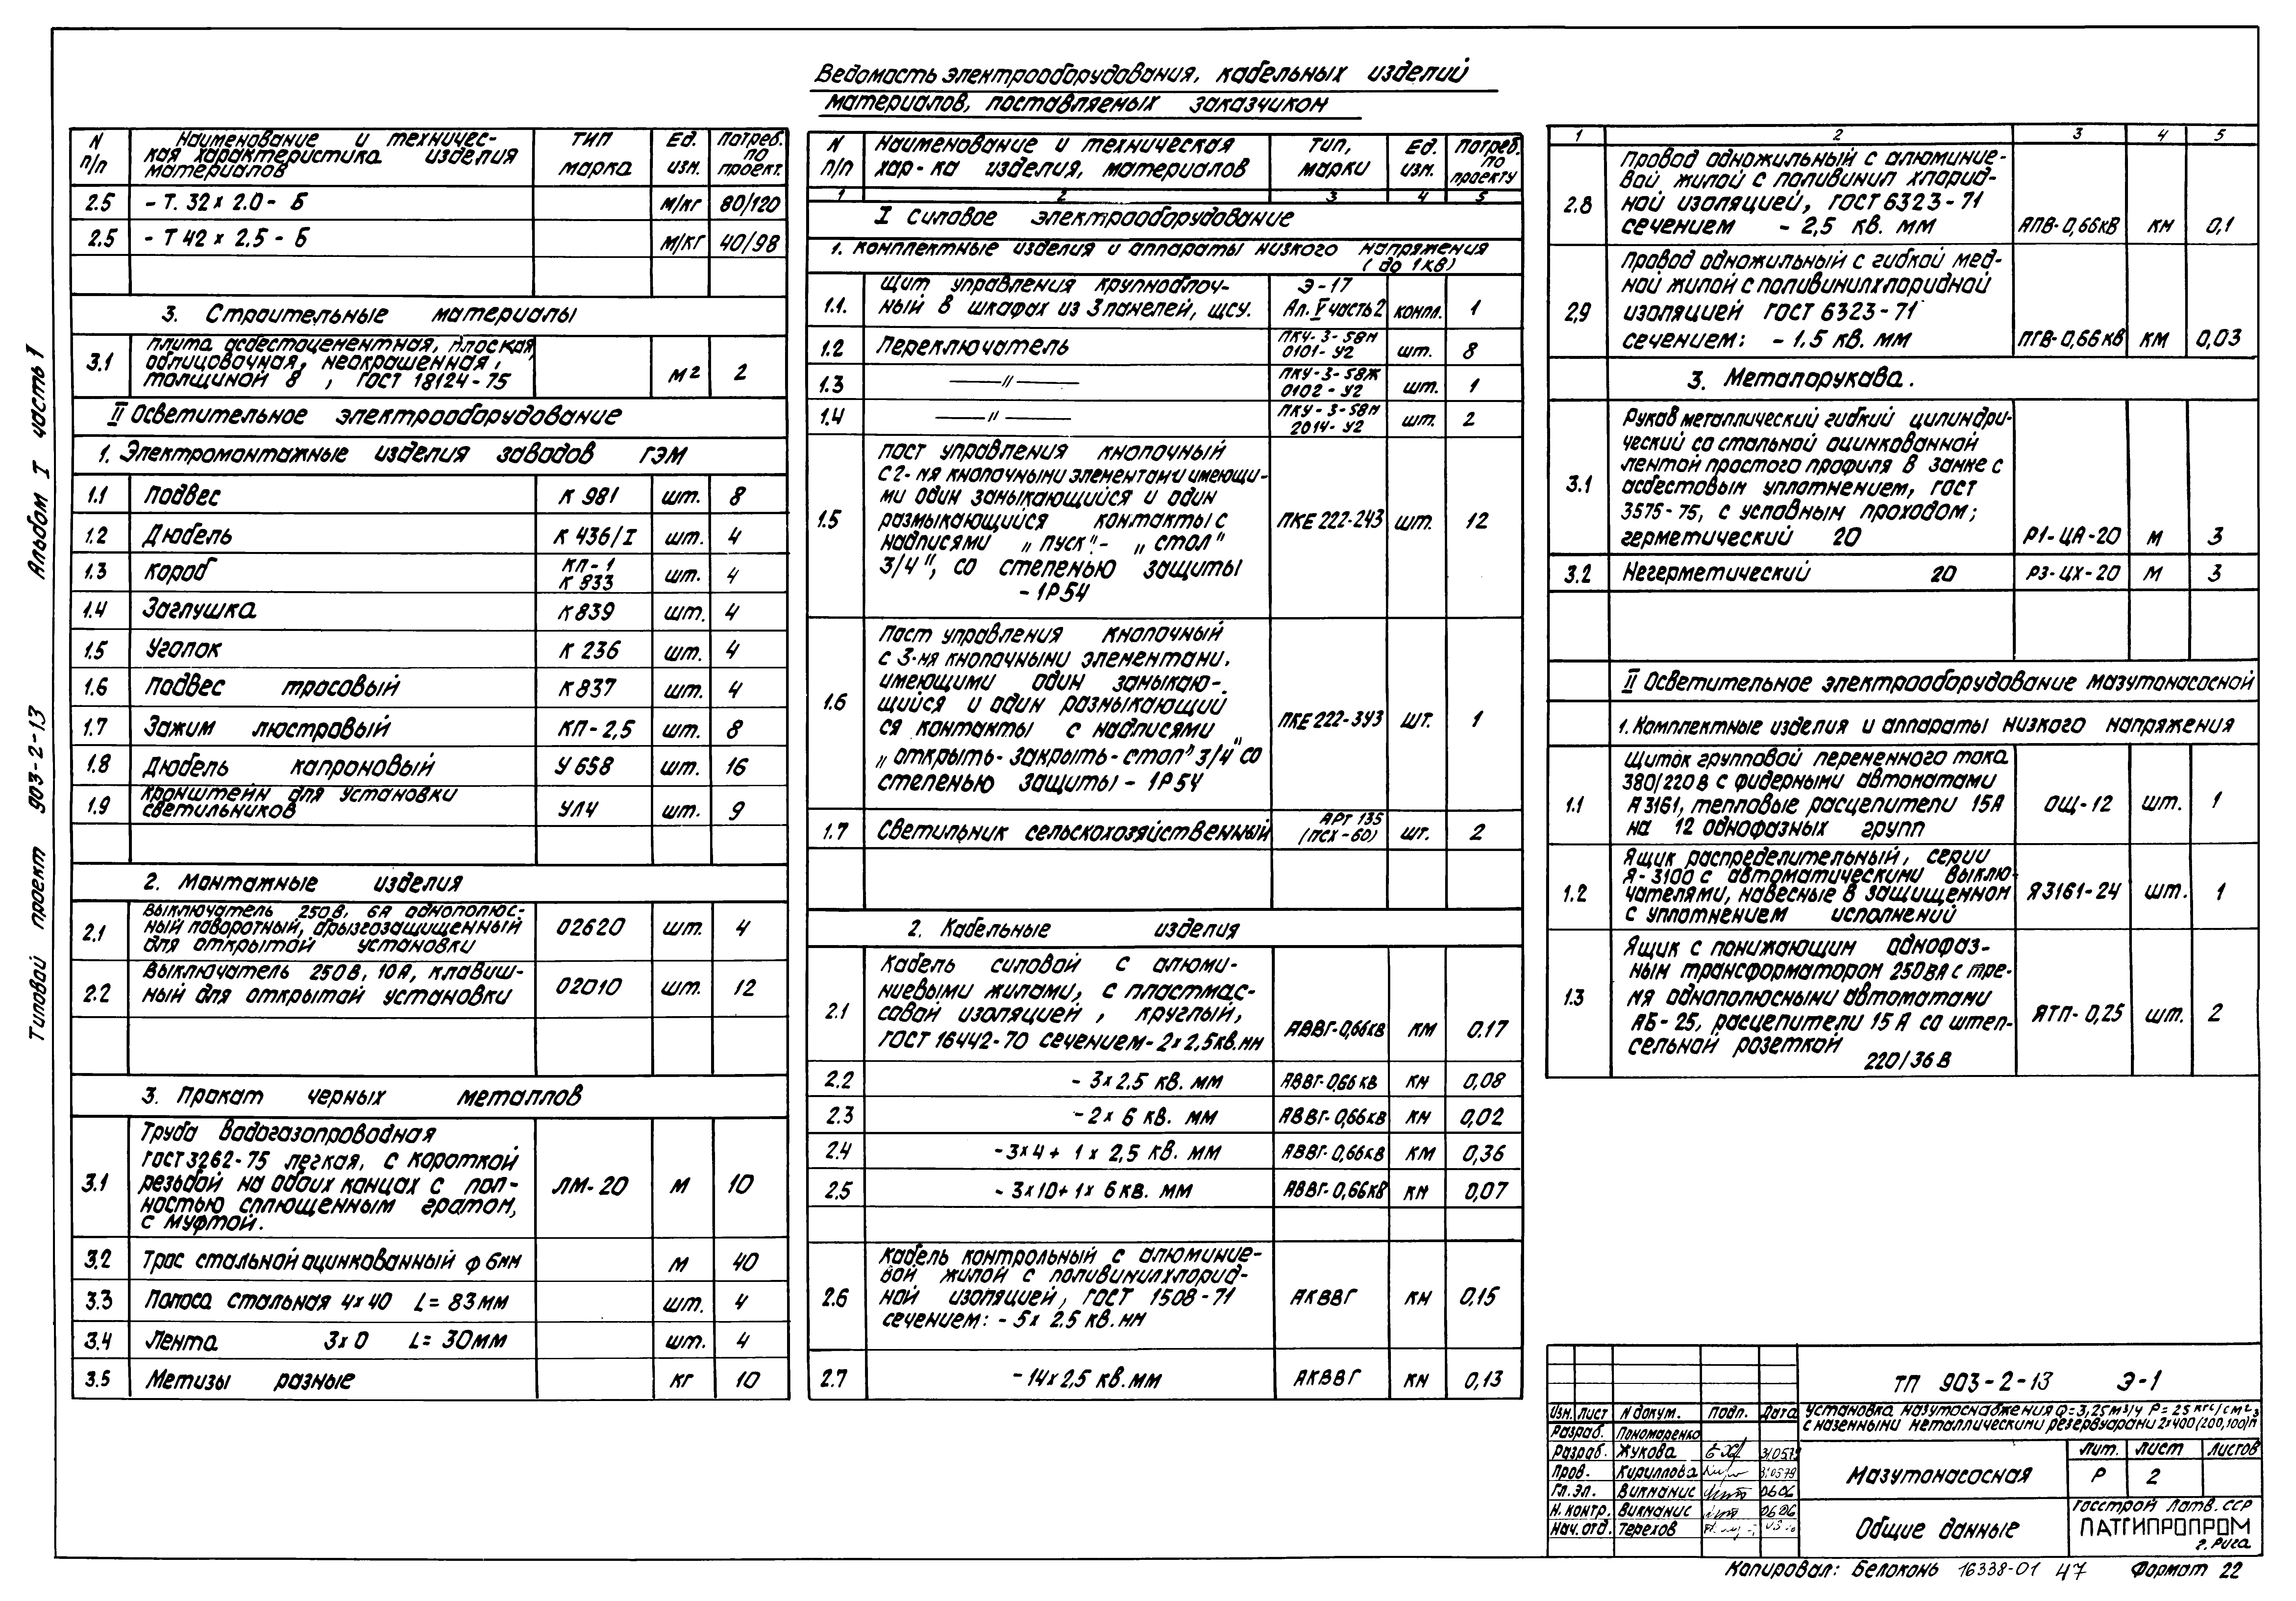 Ведомость электрооборудования, кабельных изделий
материалов, поставляемых заказчиком
Типовой проект 903-2-13 Альбом I часть 1
N п/п | Наименование и техническая характеристика изделия материалов | Тип марка | Ед. изм. | Потреб. по проект.
2.5 - Т. 32 х 2.0 - Б м/кг 80/120
2.5 - Т 42 х 2.5 - Б м/кг 40/98
3. Строительные материалы
плита асбестоцементная, плоская,
облицовочная, неокрашенная,
3.1 толщиной 8 , ГОСТ 18124-75 м2 2
II Осветительное электрооборудование
1. Электромонтажные изделия заводов ГЭМ
1.1 Подвес К 981 шт. 8
1.2 Дюбель К 436/I шт. 4
1.3 Короб КЛ-1 К 933 шт. 4
1.4 Заглушка К839 шт. 4
1.5 Уголок К 236 шт. 4
1.6 Подвес тросовый К837 шт. 4
1.7 Зажим люстровый КЛ-2,5 шт. 8
1.8 Дюбель капроновый У 658 шт. 16
кронштейн для установки
1.9 светильников УЛ4 шт. 9
2. Монтажные изделия
выключатель 250 В, 6А однополюс-
2.1 ный поворотный, брызгозащищенный 02620 шт. 4
для открытой установки
выключатель 250 В, 10 А, клавиш-
2.2 ный для открытой установки 02010 шт. 12
3. Прокат черных металлов
Труба водогазопроводная
ГОСТ 3262-75 легкая, с короткой
3.1 резьбой на обоих концах с пол- ЛМ-20 м 10
ностью сплющенным гратом,
с муфтой.
3.2 Трос стальной оцинкованный ф 6мм м 40
3.3 Полоса стальная 4х40 L = 83мм шт. 4
3.4 Лента 3х0 L = 30мм шт. 4
3.5 Метизы разные кг 10
N п/п | Наименование и техническая хар-ка изделия, материалов | Тип, марки | Ед. изм. | Потреб. по проекту
1 2 3 4 5
I Силовое электрооборудование
1. Комплектные изделия и аппараты низкого напряжения
(до 1 кВ)
Щит управления крупноблоч- Э-17
1.1. ный в шкафах из 3 панелей, щсу. Ал. V часть 2 компл. 1
1.2 Переключатель ПКУ-3-58М 0101-У2 шт. 8
1.3 —"— ПКУ-3-58Ж 0102-У2 шт. 1
1.4 —"— ПКУ-3-58М 2014-У2 шт. 2
Пост управления кнопочный
с 2-мя кнопочными элементами имеющи-
ми один замыкающийся и один
1.5 размыкающийся контакты с ПКЕ 222-243 шт. 12
надписями „пуск"- „стоп"
3/4", со степенью защиты
- 1Р54
Пост управления кнопочный
с 3-мя кнопочными элементами,
имеющими один замыкаю-
1.6 щийся и один размыкающий ПКЕ 222-3У3 шт. 1
ся контакты с надписями
„открыть-закрыть-стоп" 3/4" со
степенью защиты - 1Р54
1.7 Светильник сельскохозяйственный АРТ 135 (ПСХ-60) шт. 2
2. Кабельные изделия
Кабель силовой с алюми-
ниевыми жилами, с пластмас-
2.1 совой изоляцией, круглый,
ГОСТ 16442-70 сечением - 2х2,5 кв.мм АВВГ-0,66кв км 0.17
2.2 - 3х2.5 кв. мм АВВГ-0,66 кв км 0,08
2.3 - 2х 6 кв. мм АВВГ-0,66кв км 0,02
2.4 - 3х4 + 1 х 2,5 кв. мм АВВГ-0,66кв км 0,36
2.5 - 3х10+ 1х 6кв. мм АВВГ-0,66кв км 0,07
Кабель контрольный с алюминие-
вой жилой с поливинилхлорид-
2.6 ной изоляцией, ГОСТ 1508-71 АКВВГ км 0,15
сечением: - 5х 2.5 кв.мм
2.7 - 14х2,5 кв.мм АКВВГ км 0,13
1 2 3 4 5
Провод одножильный с алюминие-
вой жилой с поливинил хлорид-
2.8 ной изоляцией, ГОСТ 6323-71
сечением - 2,5 кв. мм АПВ-0,66кВ км 0,1
Провод одножильный с гибкой мед-
ной жилой с поливинилхлоридной
2.9 изоляцией ГОСТ 6323-71
сечением: - 1.5 кв. мм ПГВ-0,66кВ км 0,03
3. Металорукава.
Рукав металлический гибкий цилиндри-
ческий со стальной оцинкованной
лентой простого профиля в замке с
3.1 асбестовым уплотнением, ГОСТ
3575-75, с условным проходом;
герметический 20 Р1-ЦА-20 м 3
3.2 Негерметический 20 Р3-ЦХ-20 м 3
II Осветительное электрооборудование мазутонасосной
1. Комплектные изделия и аппараты низкого напряжения
Щиток групповой переменного тока
380/220 в с фидерными автоматами
1.1 А 3161, тепловые расцепители 15А ОЩ-12 шт. 1
на 12 однофазных групп
Ящик распределительный, серии
Я-3100 с автоматическими выклю-
1.2 чателями, навесные в защищенном Я3161-24 шт. 1
с уплотнением исполнений
Ящик с понижающим однофаз-
ным трансформатором 250 ВА с тре-
1.3 мя однополюсными автоматами
АБ-25, расцепители 15 А со штеп- ЯТП-0,25 шт. 2
сельной розеткой
220/36 В
ТП 903-2-13 Э-1
Установка мазутоснабжения Q=3,25м3/ч Р=25 кгс/см2,
с наземными металлическими резервуарами 2х400(200,100)м3
Изм. Лист N докум. Подп. Дата
Разраб. Пономаренко
Разраб. Жукова 31.05.79
Пров. Кириллова 31.05.79
Гл. эл. Викманис 06.06
Н. контр. Викманис 06.06
Нач. отд. Терехов
Мазутонасосная
Лит. Лист Листов
Р 2
Общие данные
Госстрой Латв. ССР
ЛАТГИПРОПРОМ
г. Рига
Копировал: Белоконь 16338-01 47 Формат 22